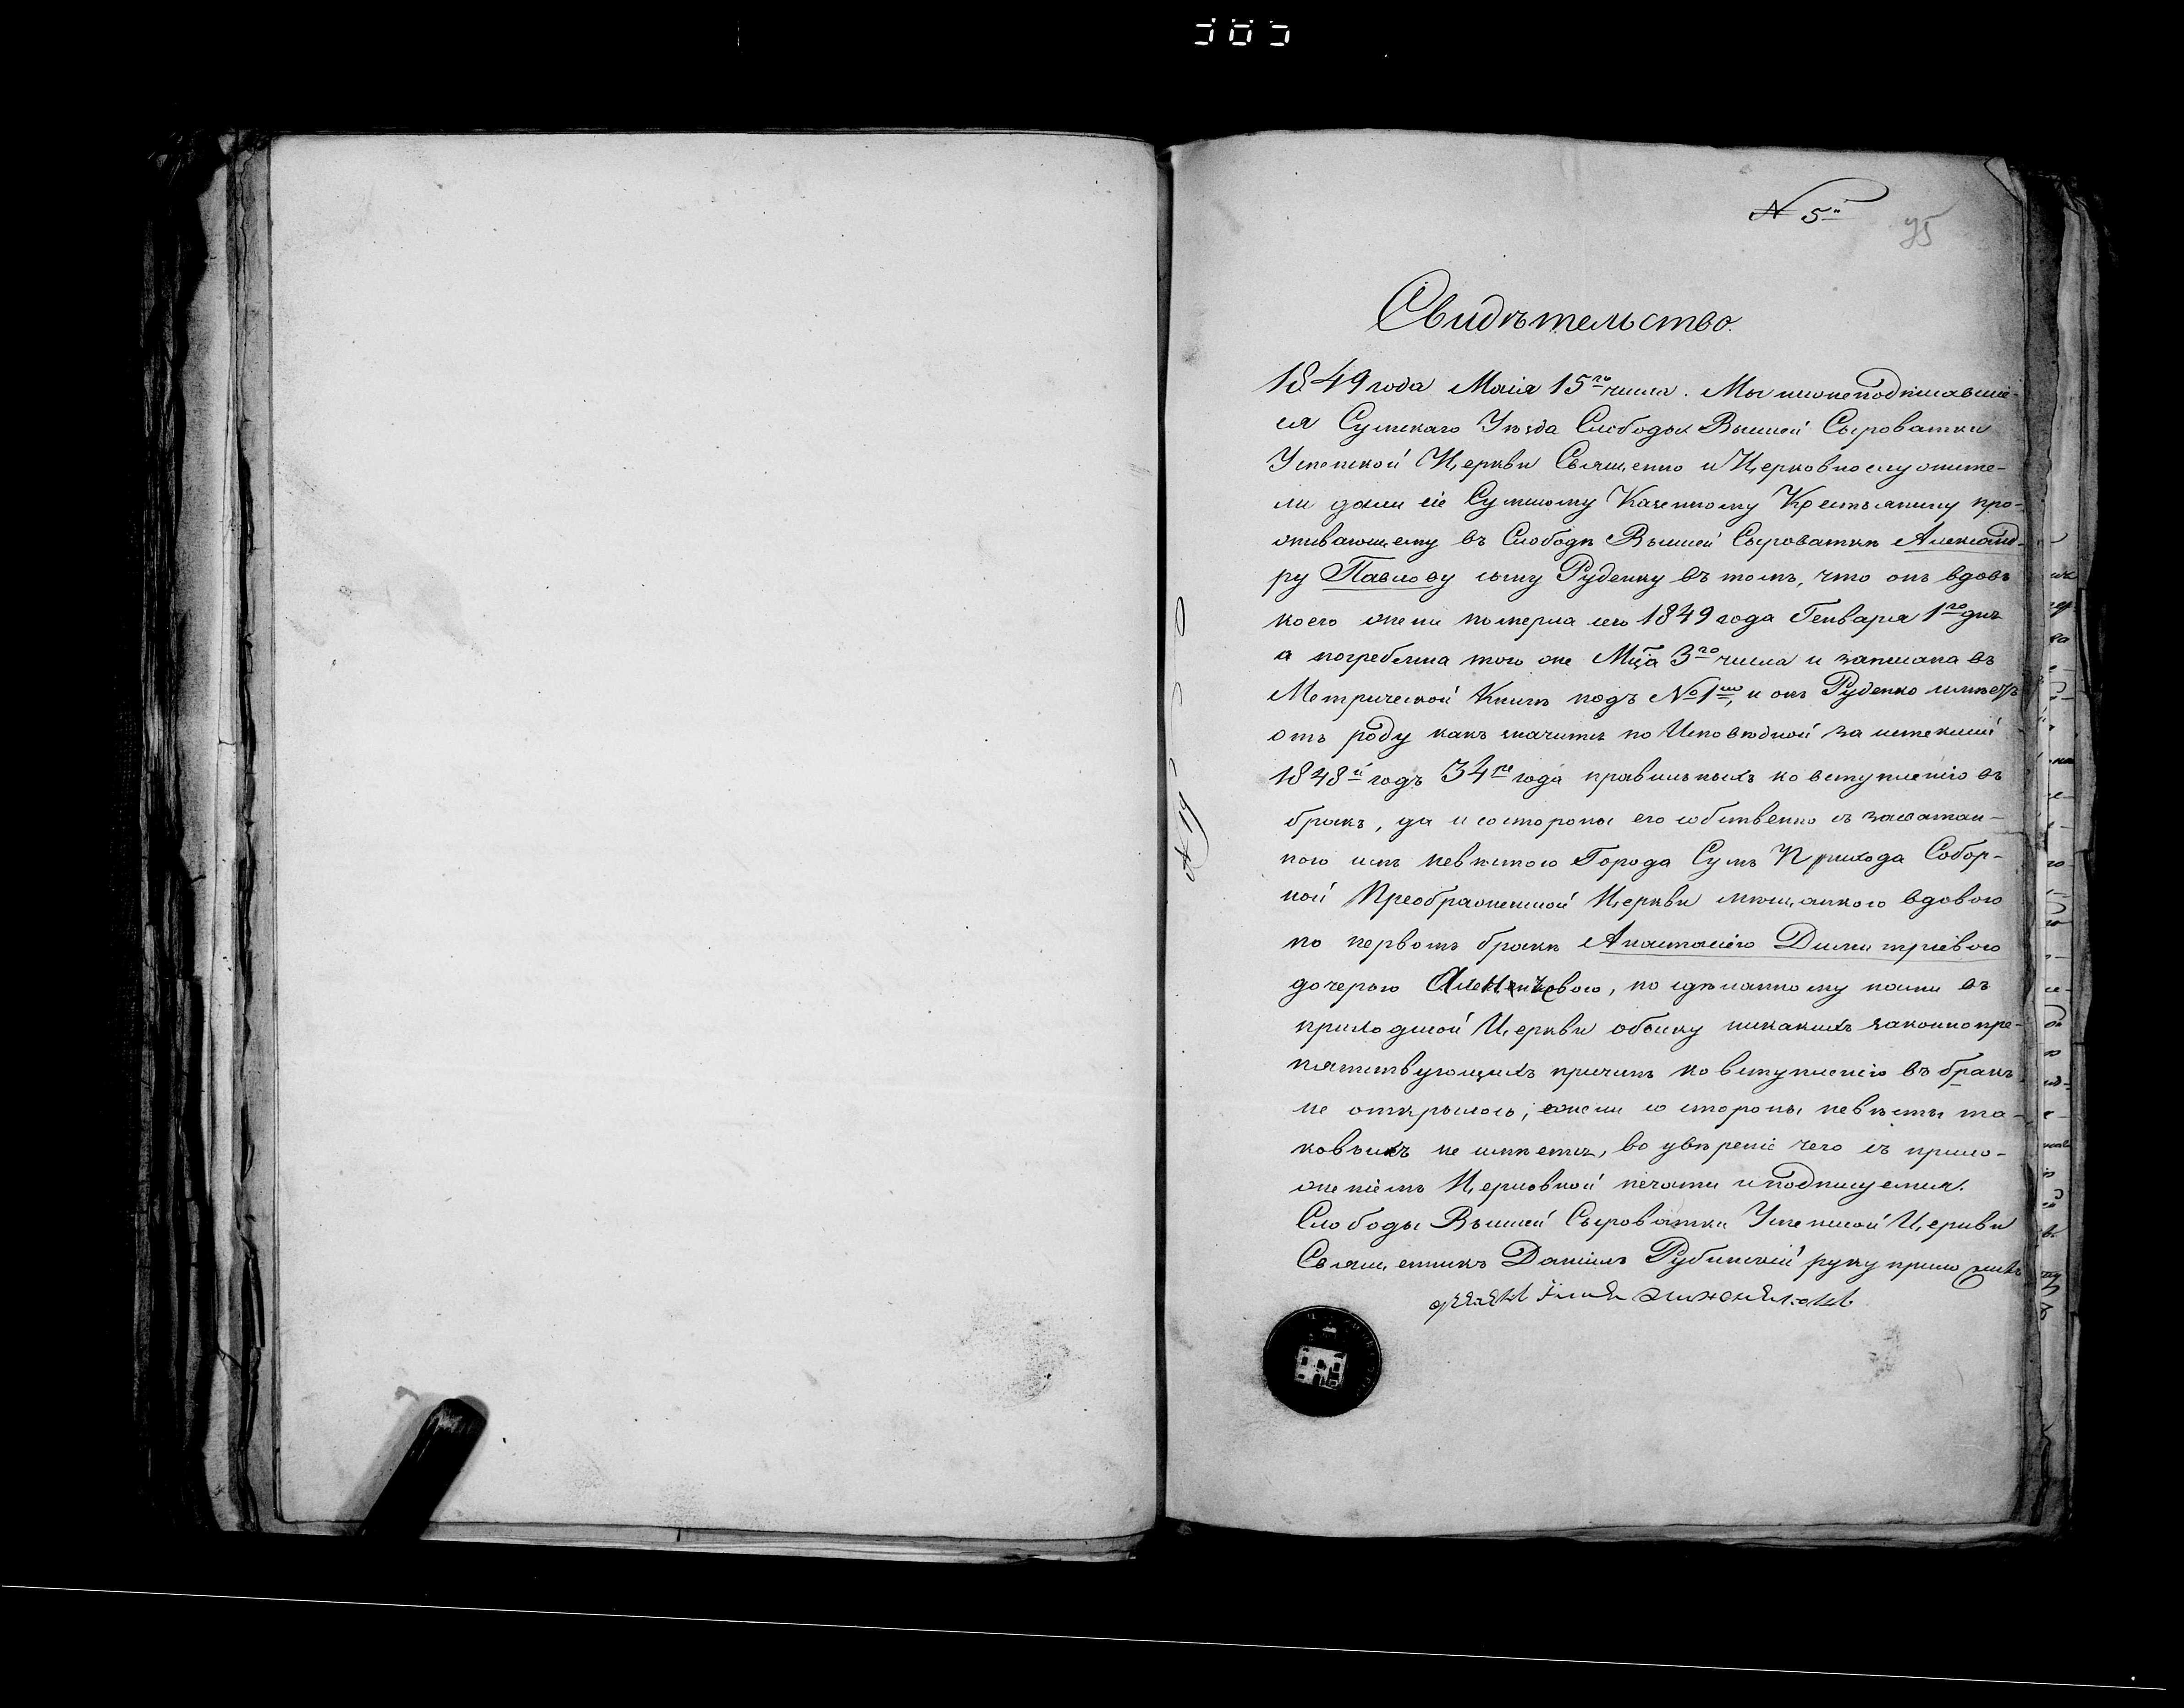 385
N 5й
95
Свидѣтельство.
1849 года Маія 15го числа. Мы нижеподписавшіе-
ся Сумскаго Уѣзда Слободы Вышей Сыроватки
Успенской Церкви Священно и Церковнослужите-
ли дали сіе Сумскому Казенному Крестьянину про-
живающему въ Слободѣ Вышей Сыроваткѣ Александ-
ру Павлову сыну Руденку въ томъ, что онъ вдовъ
коего жена померла сего 1849 года Генваря 1го дня
а погребена того же Мца 3го числа и записана въ
Метрической Книгѣ подъ №1мъ, и онъ Руденко имѣетъ
отъ роду какъ значитъ по Исповѣдной за истекшій
1848й годъ 34ре года правильныхъ ко вступленію въ
бракъ, да и со стороны его собственно съ засватан-
ною имъ невѣстою Города Сумъ Прихода Собор-
ной Преображенской Церкви мѣщанкою вдовою
по первомъ бракѣ Анастасіею Димитріевою
дочерью, по сдѣланному нами въ
приходской Церкви обыску никакихъ законнопре-
пятствующихъ причинъ ко вступленію въ бракъ
не открылось, ежели со стороны невѣсты та-
ковыхъ не имѣетъ, во увѣреніе чего съ прило-
женіемъ Церковной печати и подписуемся.
Слободы Вышей Сыроватки Успенской Церкви
Священникъ Даніилъ Рубинскій руку приложилъ